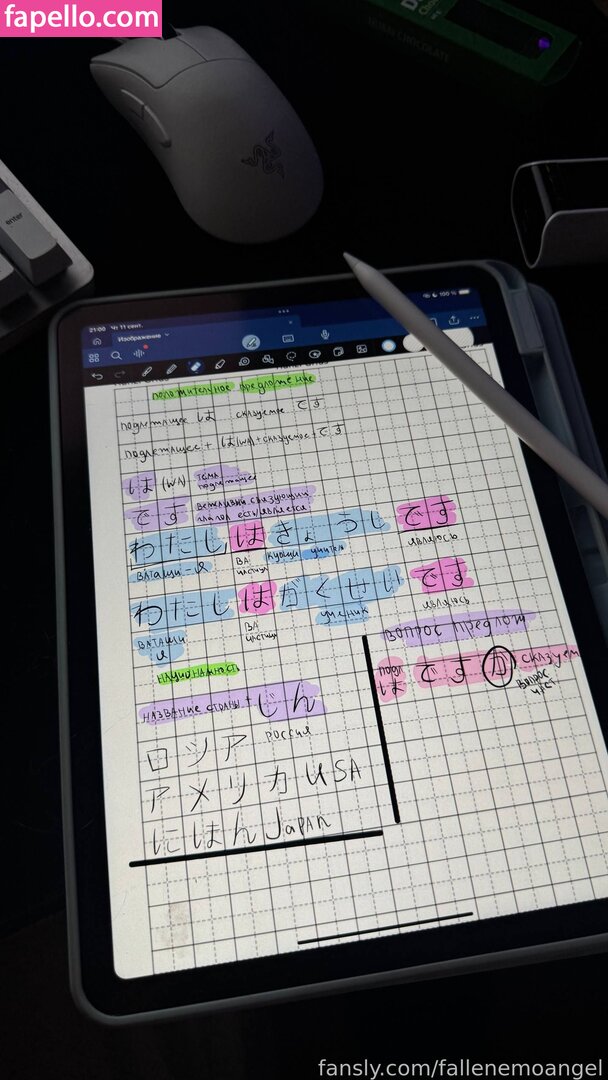 fapello.com
enter
21:00 Чт 11 сент.
100 %
Изображение
положительное предложение
подлежащее は сказуемое です
подлежащее + は(WA) + сказуемое + です
は (WA) тема подлежащее
です вежливый связующий
глагол есть/является
わたしはきょうしです
ВАТАШИ - Я ВА частица КЁУШИ учитель являюсь
わたしはがくせいです
ВАТАШИ Я ВА частица ученик являюсь
вопрос предлож
подл は ですか сказуем
вопрос част
национальность
название страны + じん
ロシア россия
アメリカ USA
にほん Japan
fansly.com/fallenemoangel